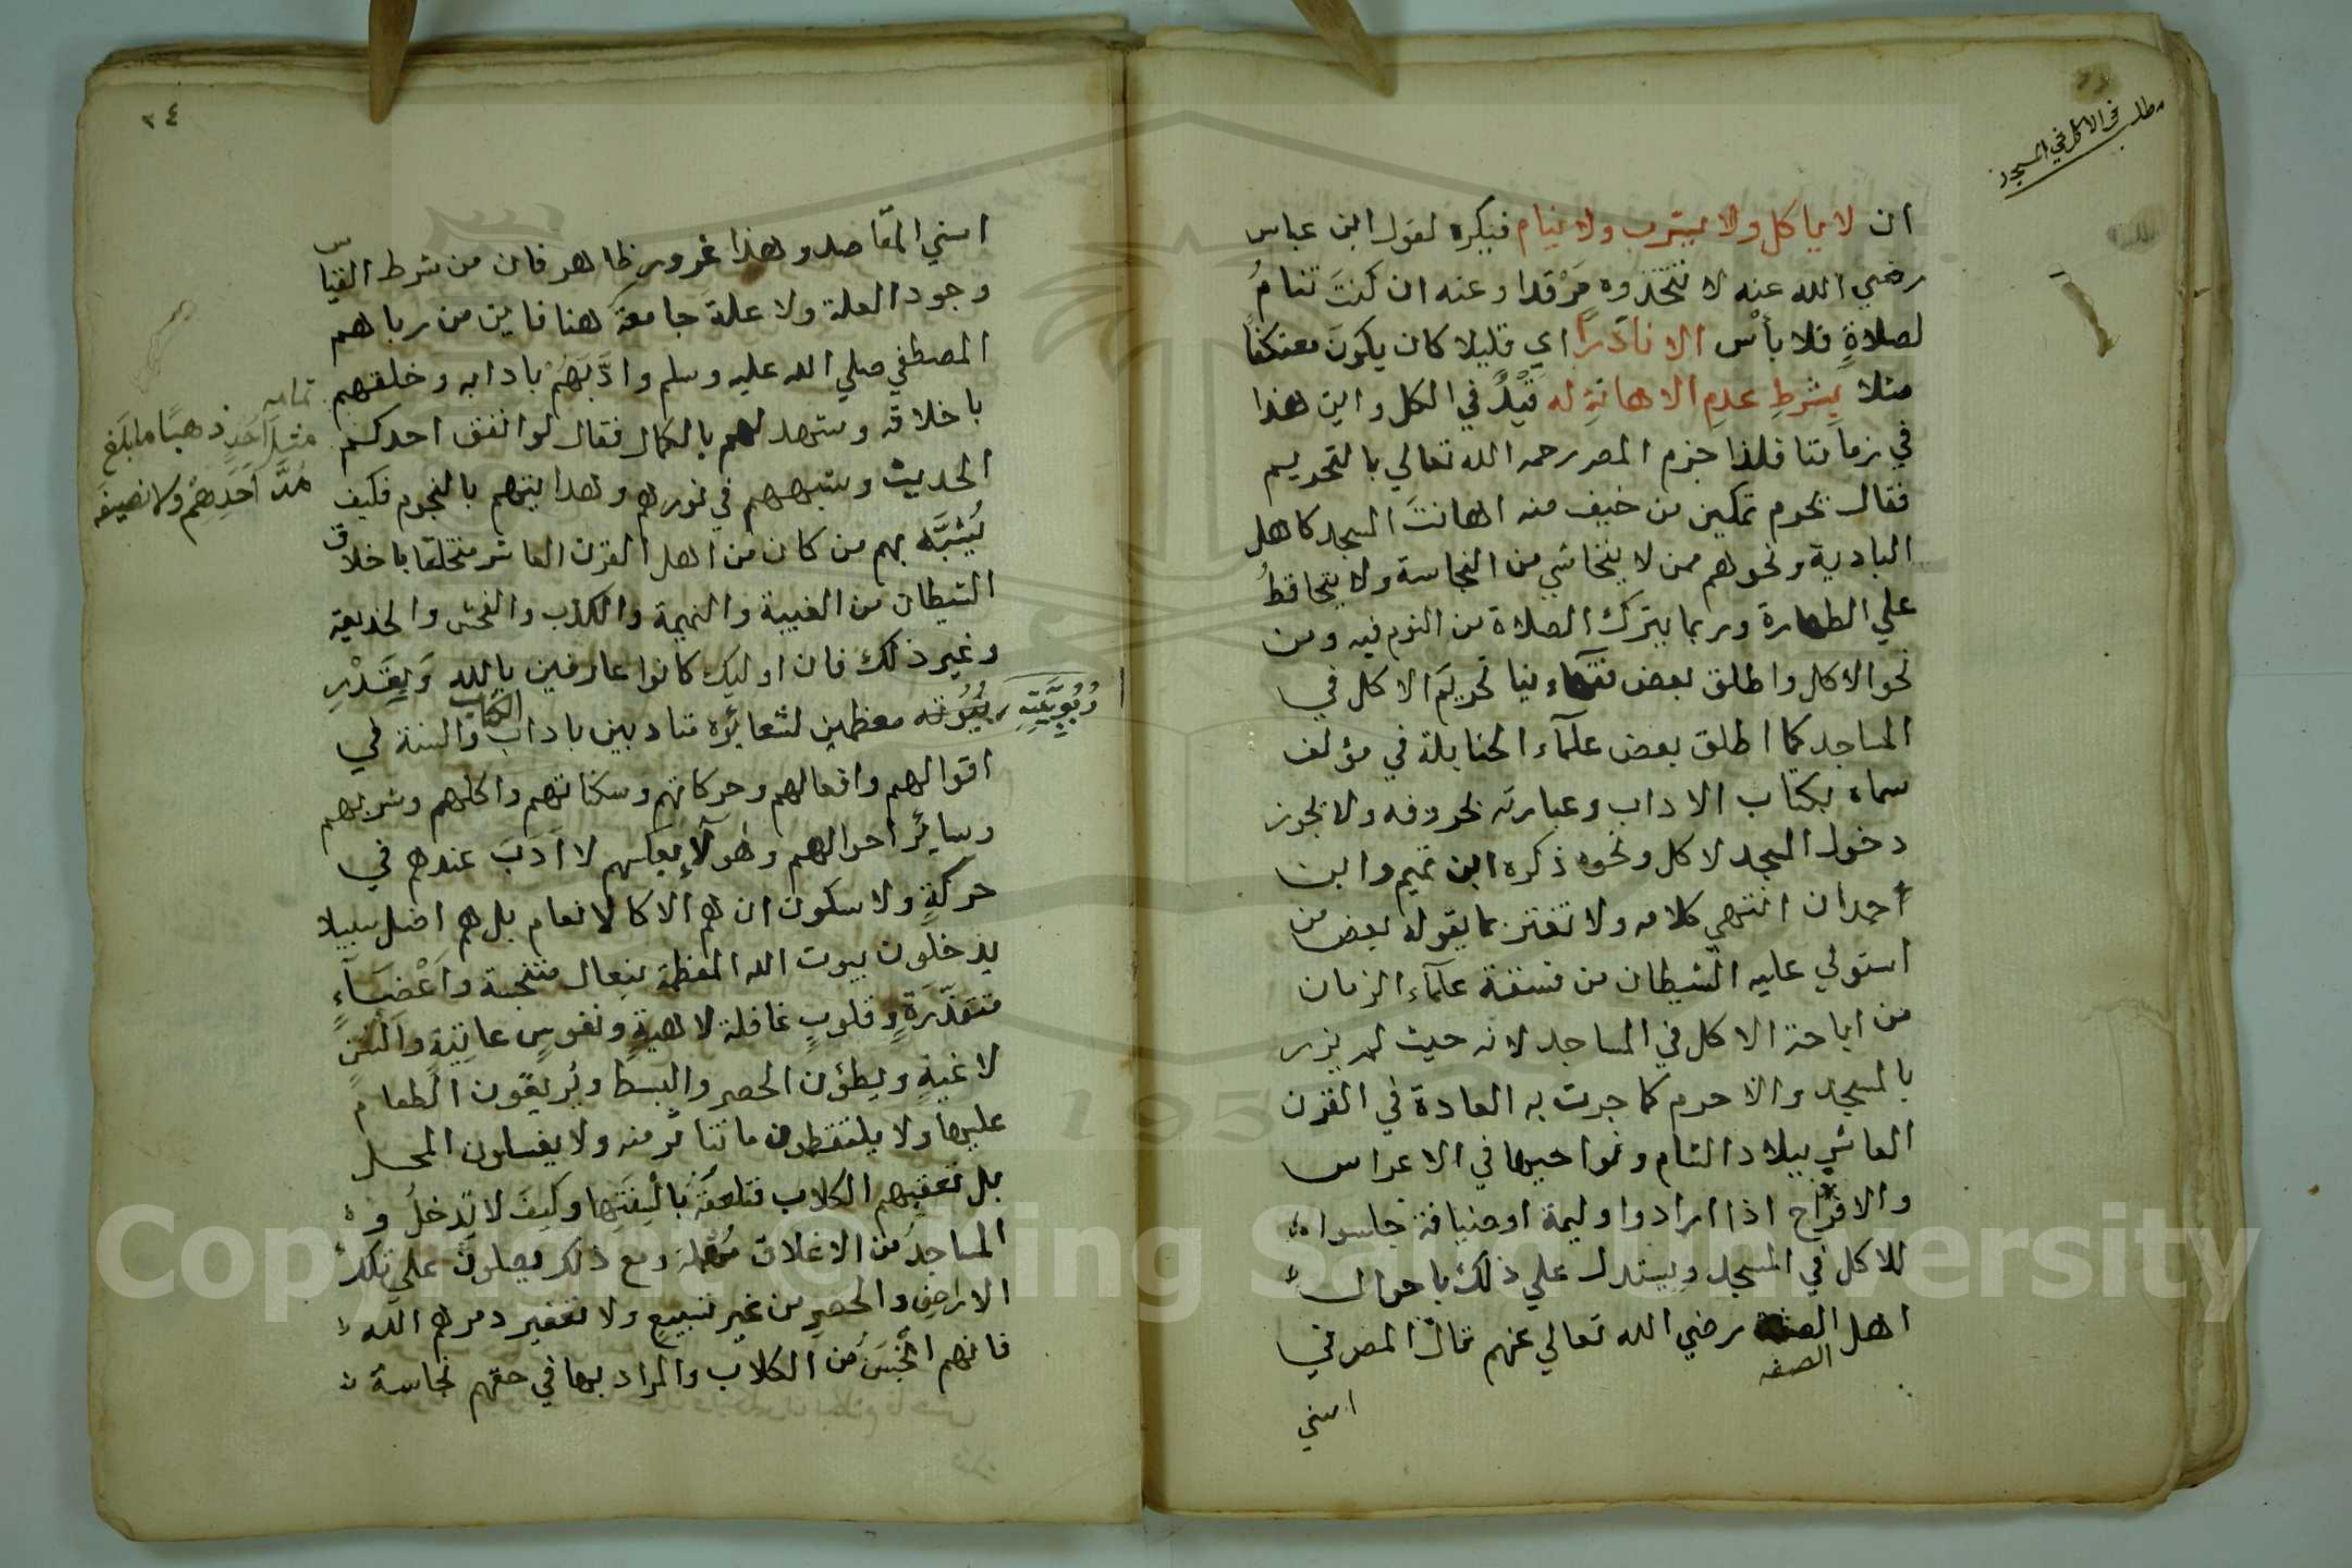 مطلب في الاكل في المسجد
ان لا ياكل ولا يشرب ولا ينام فيكره لقول ابن عباس
رضي الله عنه لا تتخذوه مَرْقدا وعنه ان كنتَ تنامُ
لصلاةٍ فلا بأس الا نادرًا اي قليلا كان يكونَ معتكفًا
مثلا بِشرطِ عدمِ الاهانةِ له قَيْدٌ في الكل واين هذا
في زماننا فلذا جزم المصر رحمه الله تعالي بالتحريم
فقال يحرم تمكين من خيف منه اهانتَ المسجد كاهل
البادية ونحوهم ممن لا يتحاشي من النجاسة ولا يتحافظُ
علي الطهارة وربما يترك الصلاة من النوم فيه ومن
نحو الاكل واطلق بعض فقهاءنا تحريمَ الاكل في
المساجد كما اطلق بعض علمآء الحنابلة في مؤلف
سماه بكتاب الاداب وعبارته بحروفه ولا يجوز
دخول المسجد لاكل ونحوه ذكره ابن تميم وابن
احمدان انتهي كلامه ولا تغتر بما يقوله بعض من
استولي عليه الشيطان من فسقة علمآء الزمان
من اباحة الاكل في المساجد لانه حيث لم يزر
بالمسجد والا حرم كما جرت به العادة في القرن
العاشر ببلاد الشام ونواحيها في الاعراس
والافراح اذا ارادوا وليمة او ضيافة جلسوا
للاكل في المسجد ويستدل علي ذلك باحوال
اهل الصفه رضي الله تعالي عنهم قال المصر في
الصفه
اسني
٢٤
اسني المقاصد وهذا غرور ظاهر فان من شرط القياس
وجود العلة ولا علة جامعة هنا فاين من رباهم
المصطفي صلي الله عليه وسلم وادَّبَهُمْ بادابه وخلقهم
باخلاقه وشهد لهم بالكمال فقال لو انفق احدكم
الحديث وشبههم في نورهم وهدايتهم بالنجوم فكيف
يُشَبَّه بهم من كان من اهل القرن العاشر متخلقا باخلاق
الشيطان من الغيبة والنميمة والكذب والفحش والخديعة
وغير ذلك فان اوليك كانوا عارفين بالله وَبِقَدْرِ
بُيُوته معظمين لشعائره متادبين باداب الكتاب والسنة في
اقوالهم وافعالهم وحركاتهم وسكناتهم واكلهم وشربهم
وسائر احوالهم وهولآءِ بعكسهم لا اَدَبَ عندهم في
حركةٍ ولا سكون ان هم الا كالانعام بل هم اضل سبيلا
يدخلون بيوت الله المعظمة بنعال متنجسة وَاَعْضَآءٍ
متقذّرَةٍ وقلوبٍ غافلة لاهيةٍ ونفوسٍ عاتِيَةٍ والسنٍ
لاغيةٍ ويطؤن الحصر والبسط ويُريقون الطعام
عليها ولا يلتقطون ما تناثر منه ولا يغسلون المحل
بل تعقبهم الكلاب فتلعقه بالسِنَتِها وكيف لا تدخلُ و
المساجدُ من الاغلاق ومع ذلك يصلون علي تلك
الاراضي والحصر من غير تسبيع ولا تعفير دمرهم الله
فانهم انجَسُ من الكلاب والمراد بها في حقهم نجاسة
تمامه
مثلَ اُحَدٍ ذهبًا ما بلغ
مُدَّ اَحَدِهُم ولا نصيفَه
رُبُوبِيَّتِهِ
Copyright © King Saud University
195